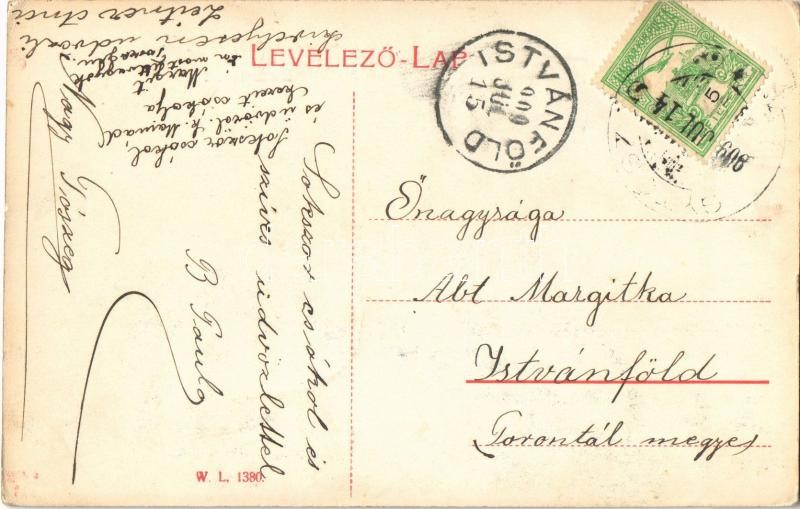 LEVELEZŐ-LAP
ISTVÁNFÖLD
909
JUL
15
909 JUL 14
Őnagysága
Abt Margitka
Istvánföld
Torontál megye
Sokszor csókol és
szíves üdvözlettel
B Paula
Sokszor csókol,
és üdvözöl k. Mamád
kezeit csókolja
Margit
én most
Nagy Tószeg
szívélyesen üdvözli
Leitner Anci
W. L. 1380.